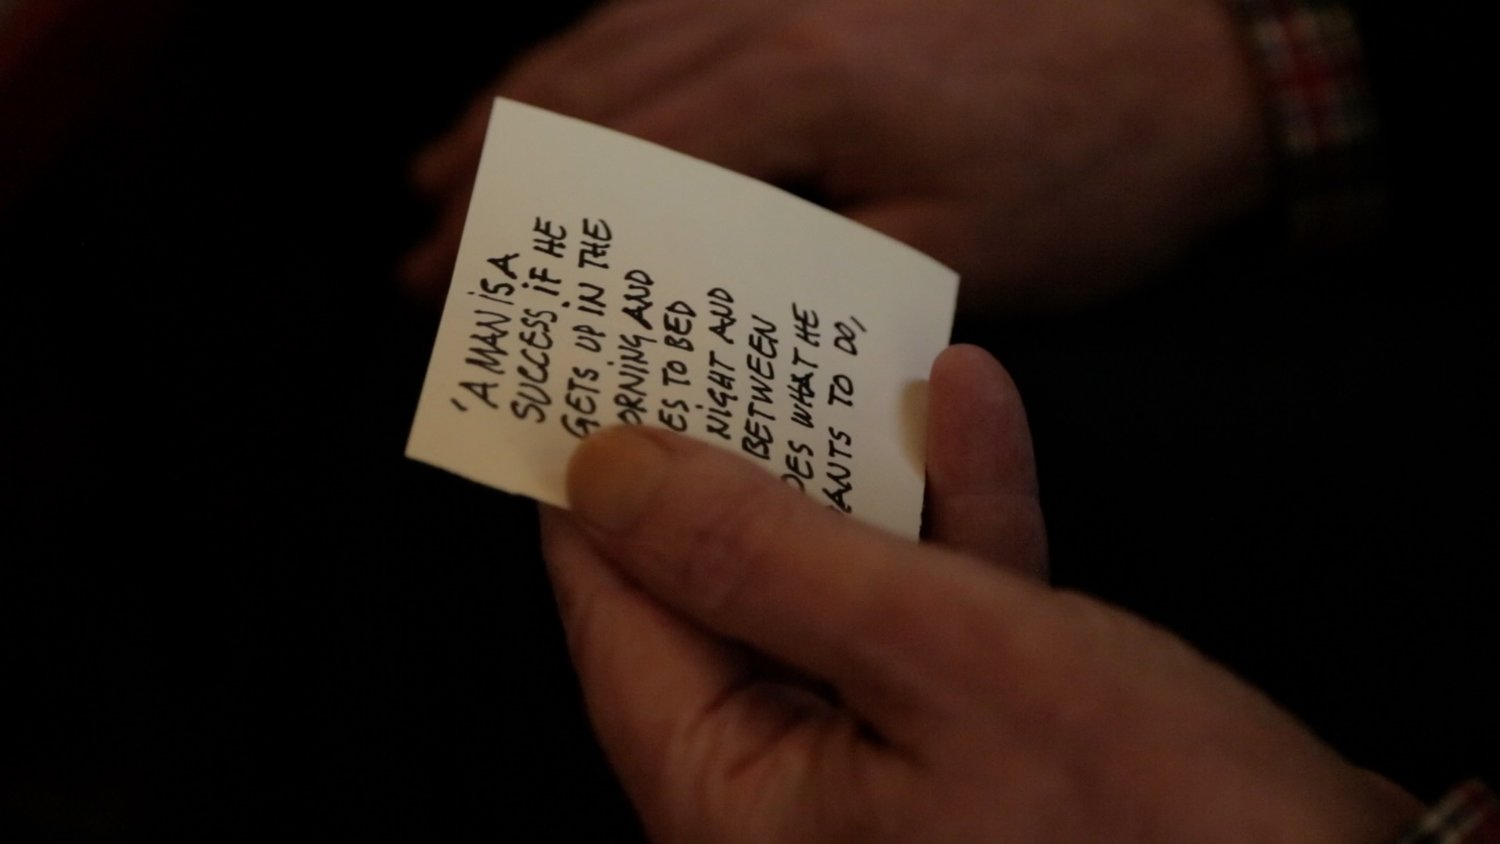 'A MAN iS A
SUCCESS iF HE
GETS UP IN THE
ORNING AND
ES TO BED
NIGHT AND
BETWEEN
OES WHAT HE
ANTS TO DO,